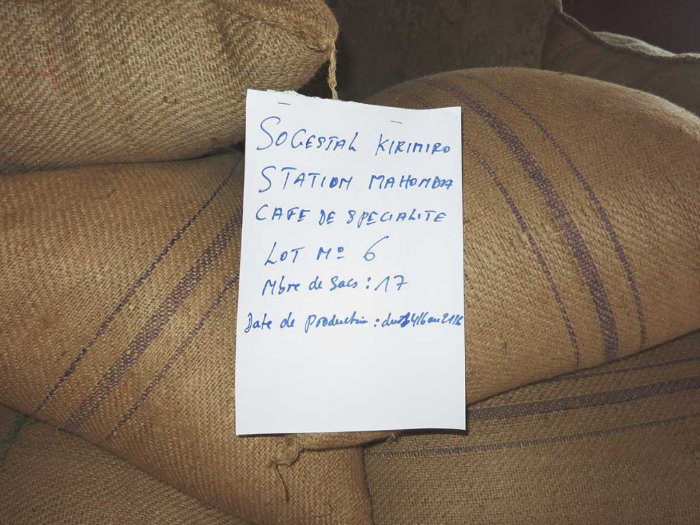 SOGESTAL KIRIMIRO
STATION MAHONDA
CAFE DE SPECIALITE
LOT Nº 6
Nbre de Sacs : 17
Date de Production : du au 21/6